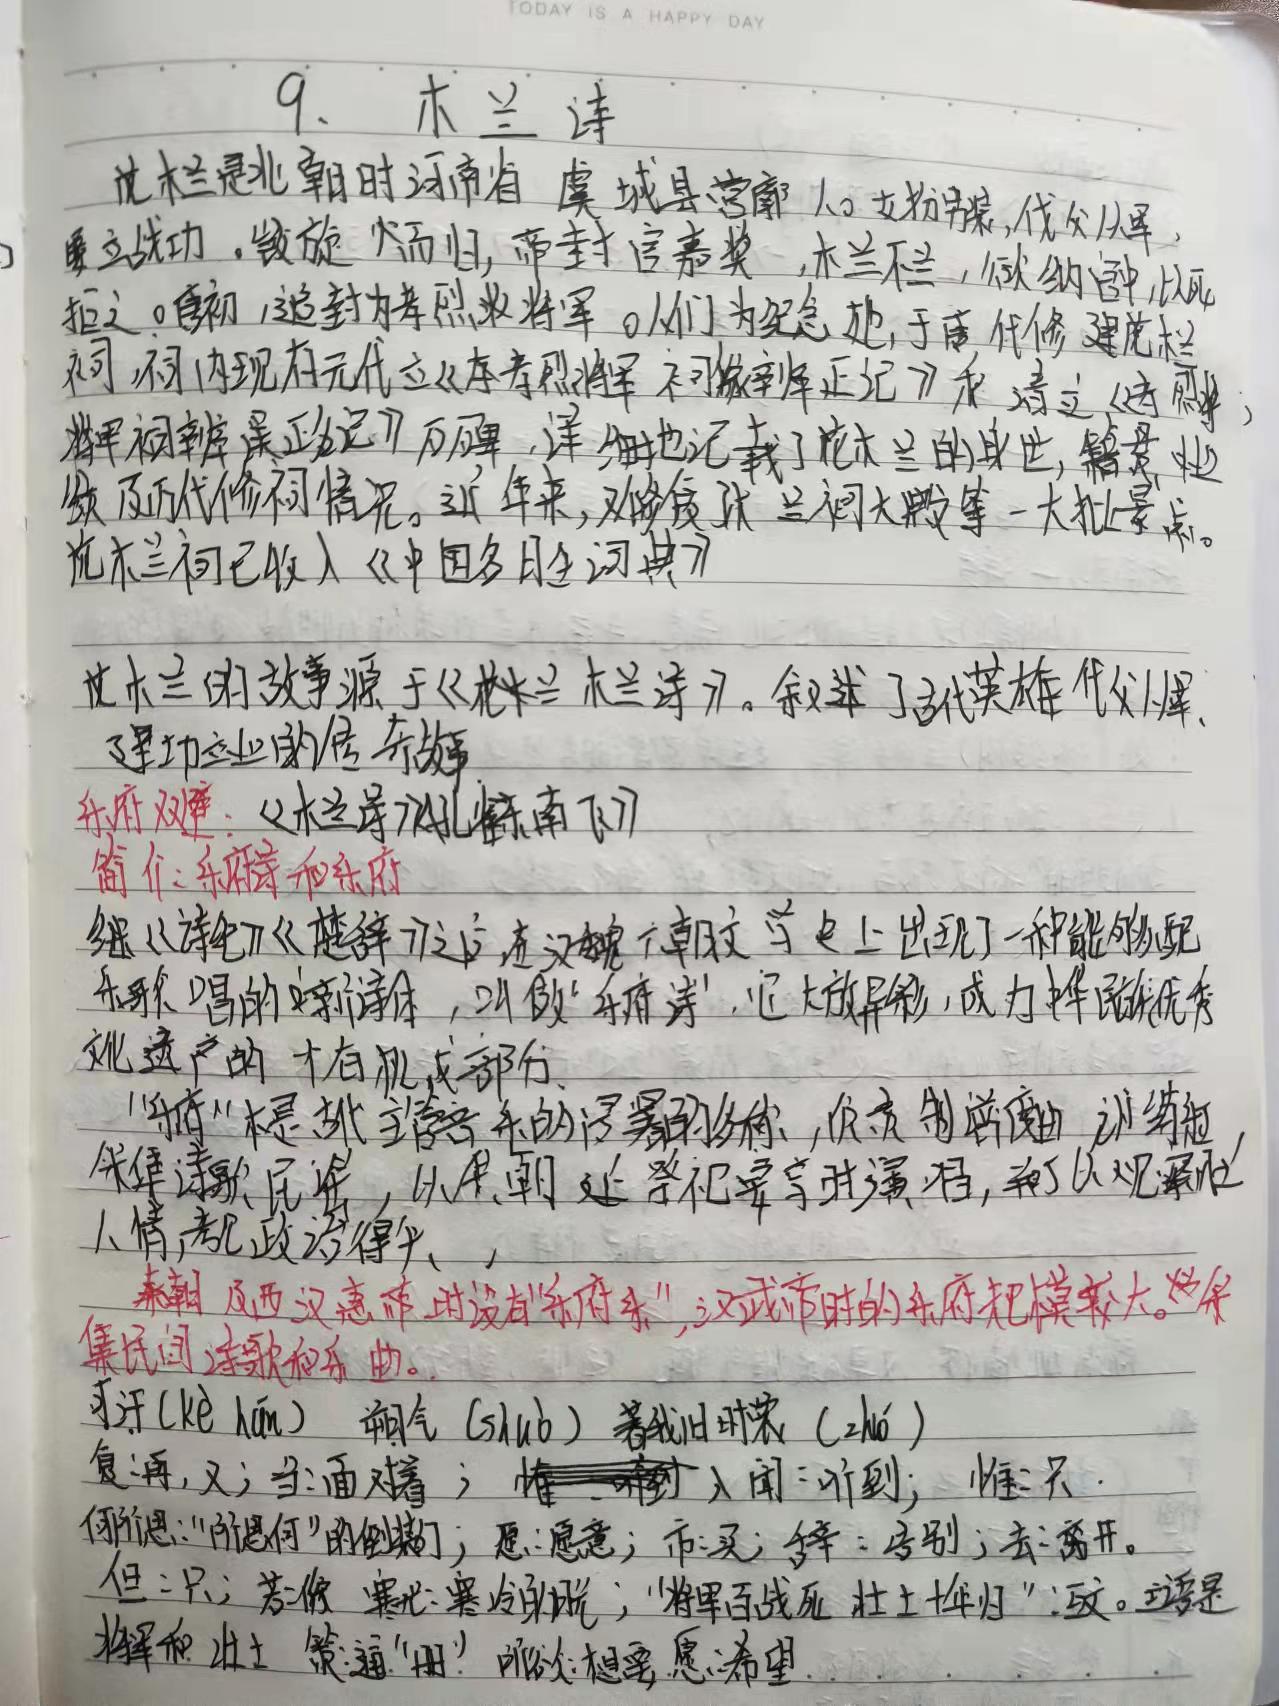 TODAY IS A HAPPY DAY
9、木兰诗
花木兰是北朝时河南省 虞城县营廓人。女扮男装,代父从军,
立战功。凯旋 而归,帝封官嘉奖,木兰不 ,欲纳宫中,以死
拒之。唐初,追封为孝烈 将军。人们为纪念她,于唐代修建花木兰
祠,祠内现存元代立《 孝烈将军祠像辨正记》和清立《孝烈
将军祠辨误正名记》 碑,详细地记载了花木兰的身世,籍贯,
绩及历代修祠情况。近年来,又修复 木兰祠大殿等一大批景点。
花木兰祠已收入《中国名胜词典》
花木兰的故事源于《 木兰诗》。叙述了古代英雄代父从军、
建功立业的传奇故事
乐府双璧:《木兰诗》《孔雀东南飞》
简介:乐府诗和乐府
继《诗经》《楚辞》之后,在汉魏六朝文学史上出现了一种能够配
乐歌唱的 新诗体,叫做“乐府诗”,它大放异彩,成为中华民族优秀
文化遗产的 有机 成部分、
“乐府”本是古代主管音乐的 署的名称、,负责制谱度曲,训练
采集诗歌民谣,以供朝廷祭祀宴享时演唱,并可以观察风土
人情,考见政治得失、,
秦朝及西汉惠帝时设有“乐府 ”,汉武帝时的乐府规模较大。 采
集民间诗歌和乐曲。
可汗(kè hán) 朔气(shuò) 著我旧时裳(zhuó)
复:再,又;当:面对着; 闻:听到; 惟:只.
何所思:“所思何”的倒装 ;愿:愿意;市:买; 辞:告别;去:离开。
但:只;若: 寒光:寒冷的 ;“将军百战死 壮士十年归”:互文。 是
将军和壮士 策:通“册” 所欲:想要 愿:希望